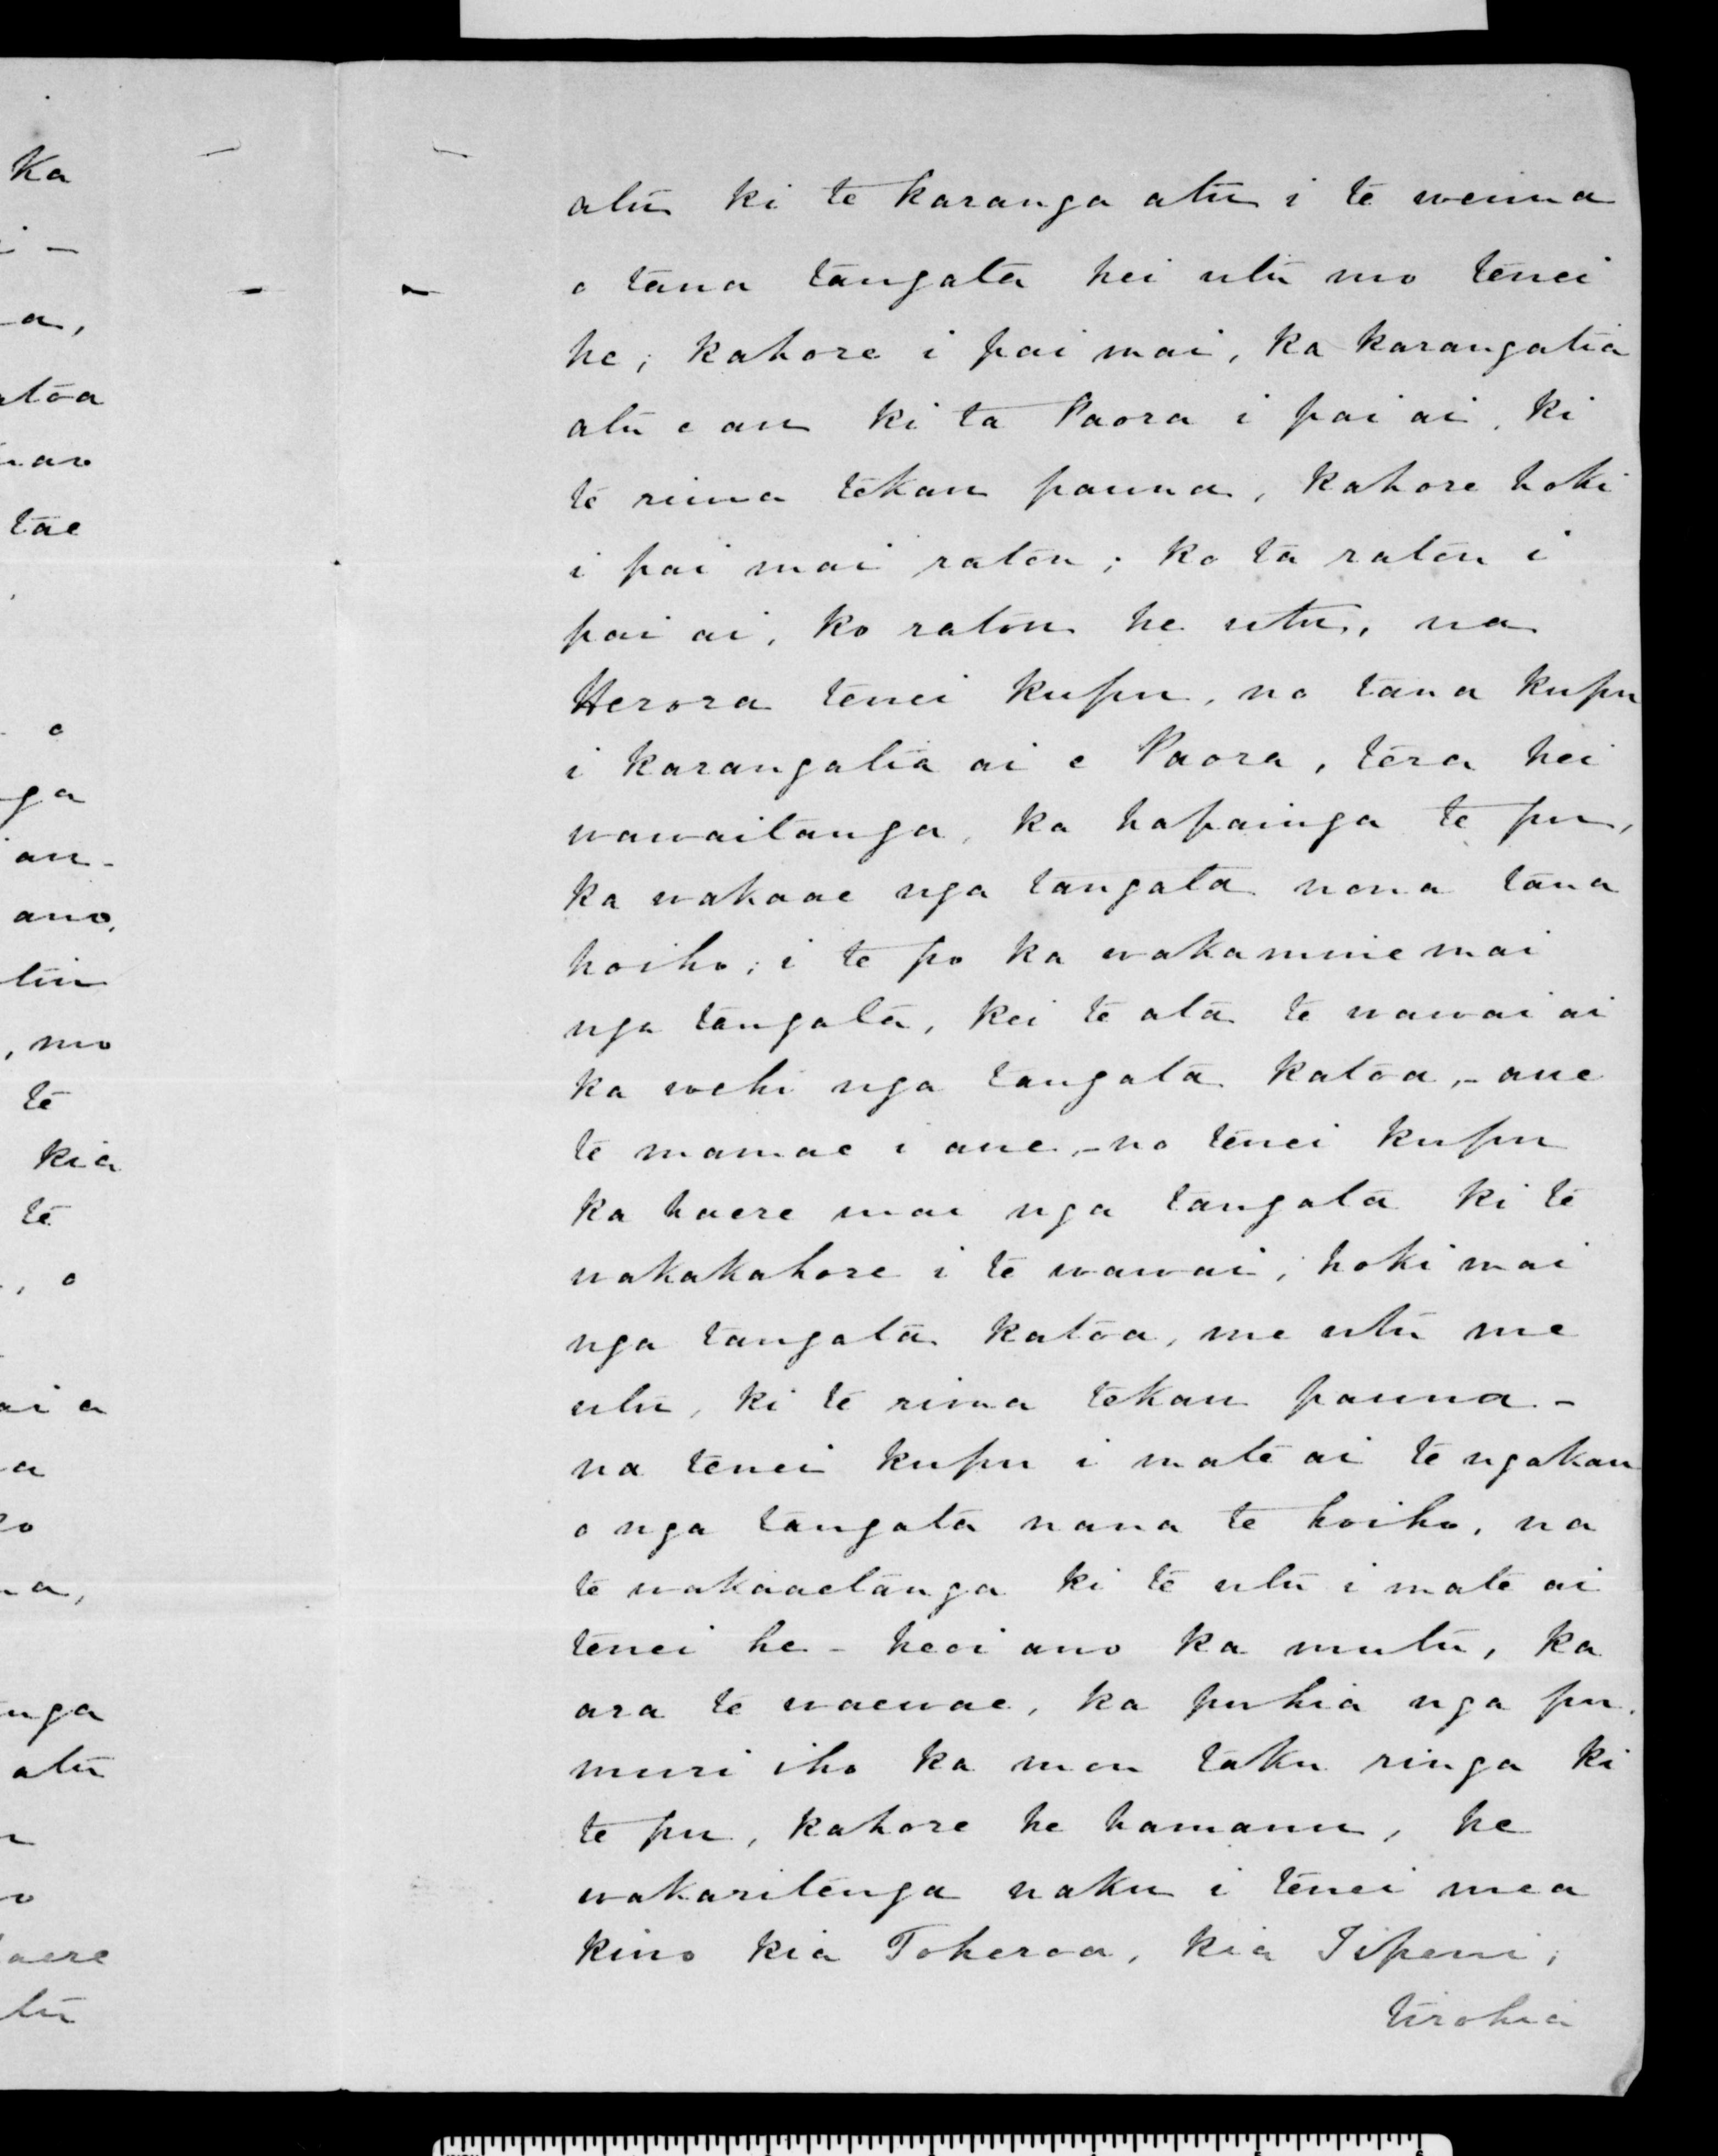 Ka
a,
atoa
tae
o
ga
au-
ano,
tu
, mo
te
kia
te
, o
ai a
a
a,
nga
atu
haere
tu
atu ki te karanga atu i te wenua
o tana tangata hei utu mo tenei
he; kahore i pai mai, ka karangatia
atu e au ki ta Paora i pai ai, ki
te rima tekau pauna, kahore hoki
i pai mai ratou; ko ta ratou i
pai ai, ko ratou he utu, na
Herora tenei kupu, no tana kupu
i karangatia ai e Paora, tera hei
wawaitanga, ka hapainga te pu,
ka wakaae nga tangata nona tana
hoiho; i te po ka wakamine mai
nga tangata, kei te ata te wawai ai
ka wehi nga tangata katoa, - aue
te mamae i aue, - no tenei kupu
ka haere mai nga tangata ki te
wakakahore i te wawai; hoki mai
nga tangata katoa, me utu me
utu, ki te rima tekau pauna -
na tenei kupu i mate ai te ngakau
o nga tangata nana te hoiho, na
te wakaaetanga ki te utu i mate ai
tenei he - heoi ano ka mutu, ka
ara te waewae, ka puhia nga pu.
muri iho ka mou taku ringa ki
te pu, kahore he hamanu, he
wakaritenga naku i tenei mea
kino kia Toheroa, kia Tipeni;
tirohia